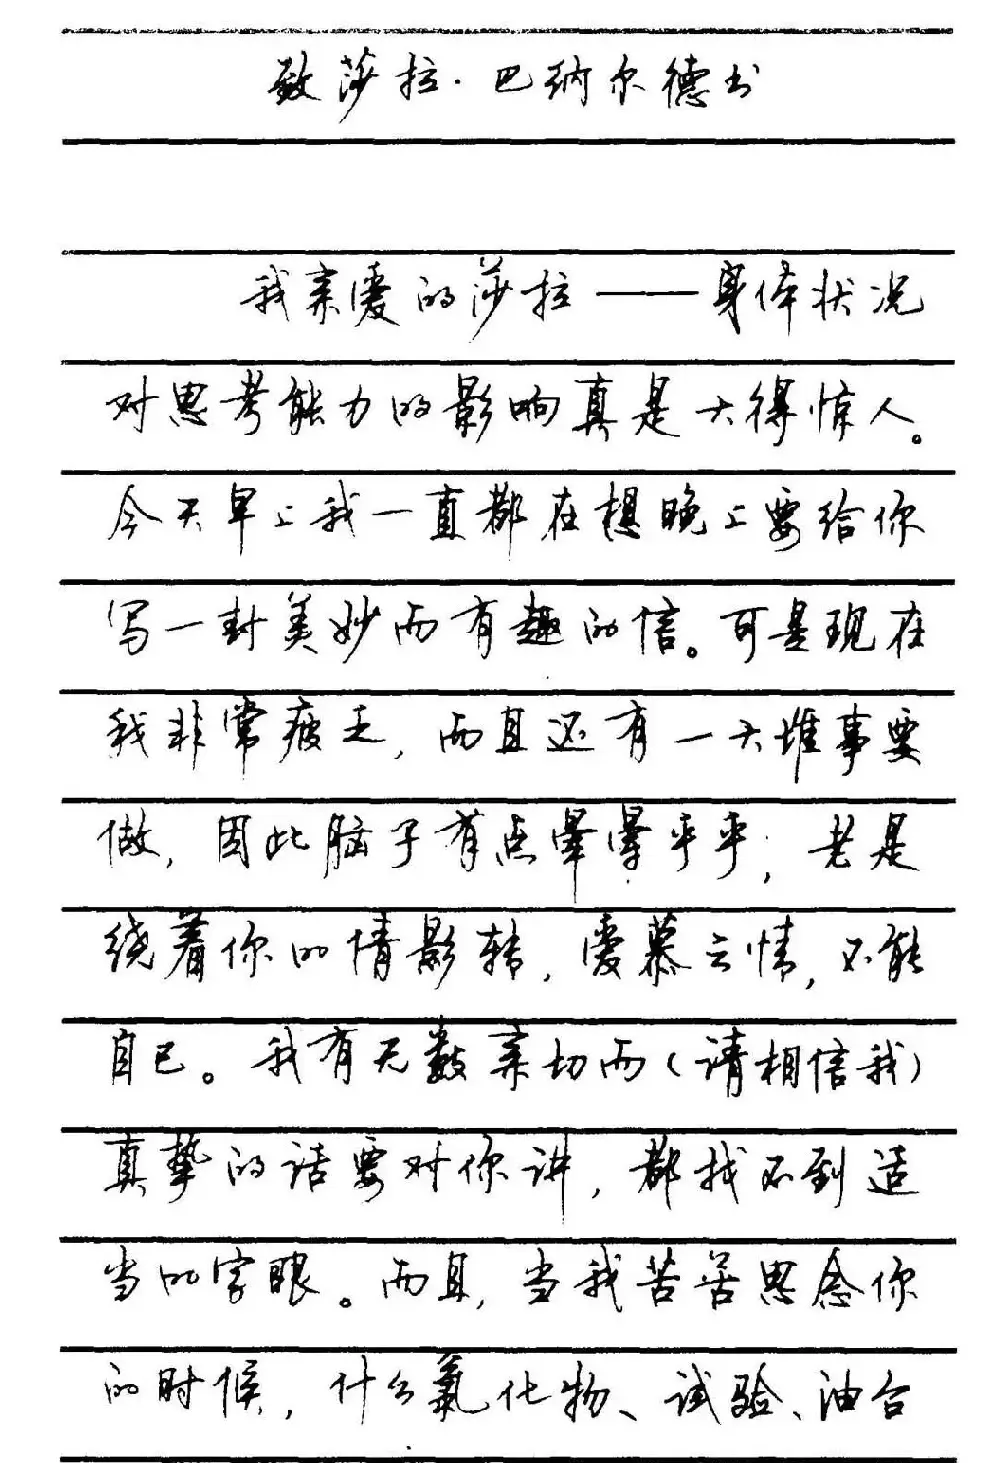 致莎拉·巴纳尔德书
我亲爱的莎拉——身体状况
对思考能力的影响真是大得惊人。
今天早上我一直都在想晚上要给你
写一封美妙而有趣的信。可是现在
我非常疲乏,而且还有一大堆事要
做,因此脑子有点晕晕乎乎;老是
绕着你的倩影转,爱慕之情,不能
自已。我有无数亲切而(请相信我)
真挚的话要对你讲,都找不到适
当的字眼。而且,当我苦苦思念你
的时候,什么氯化物、试验、油合